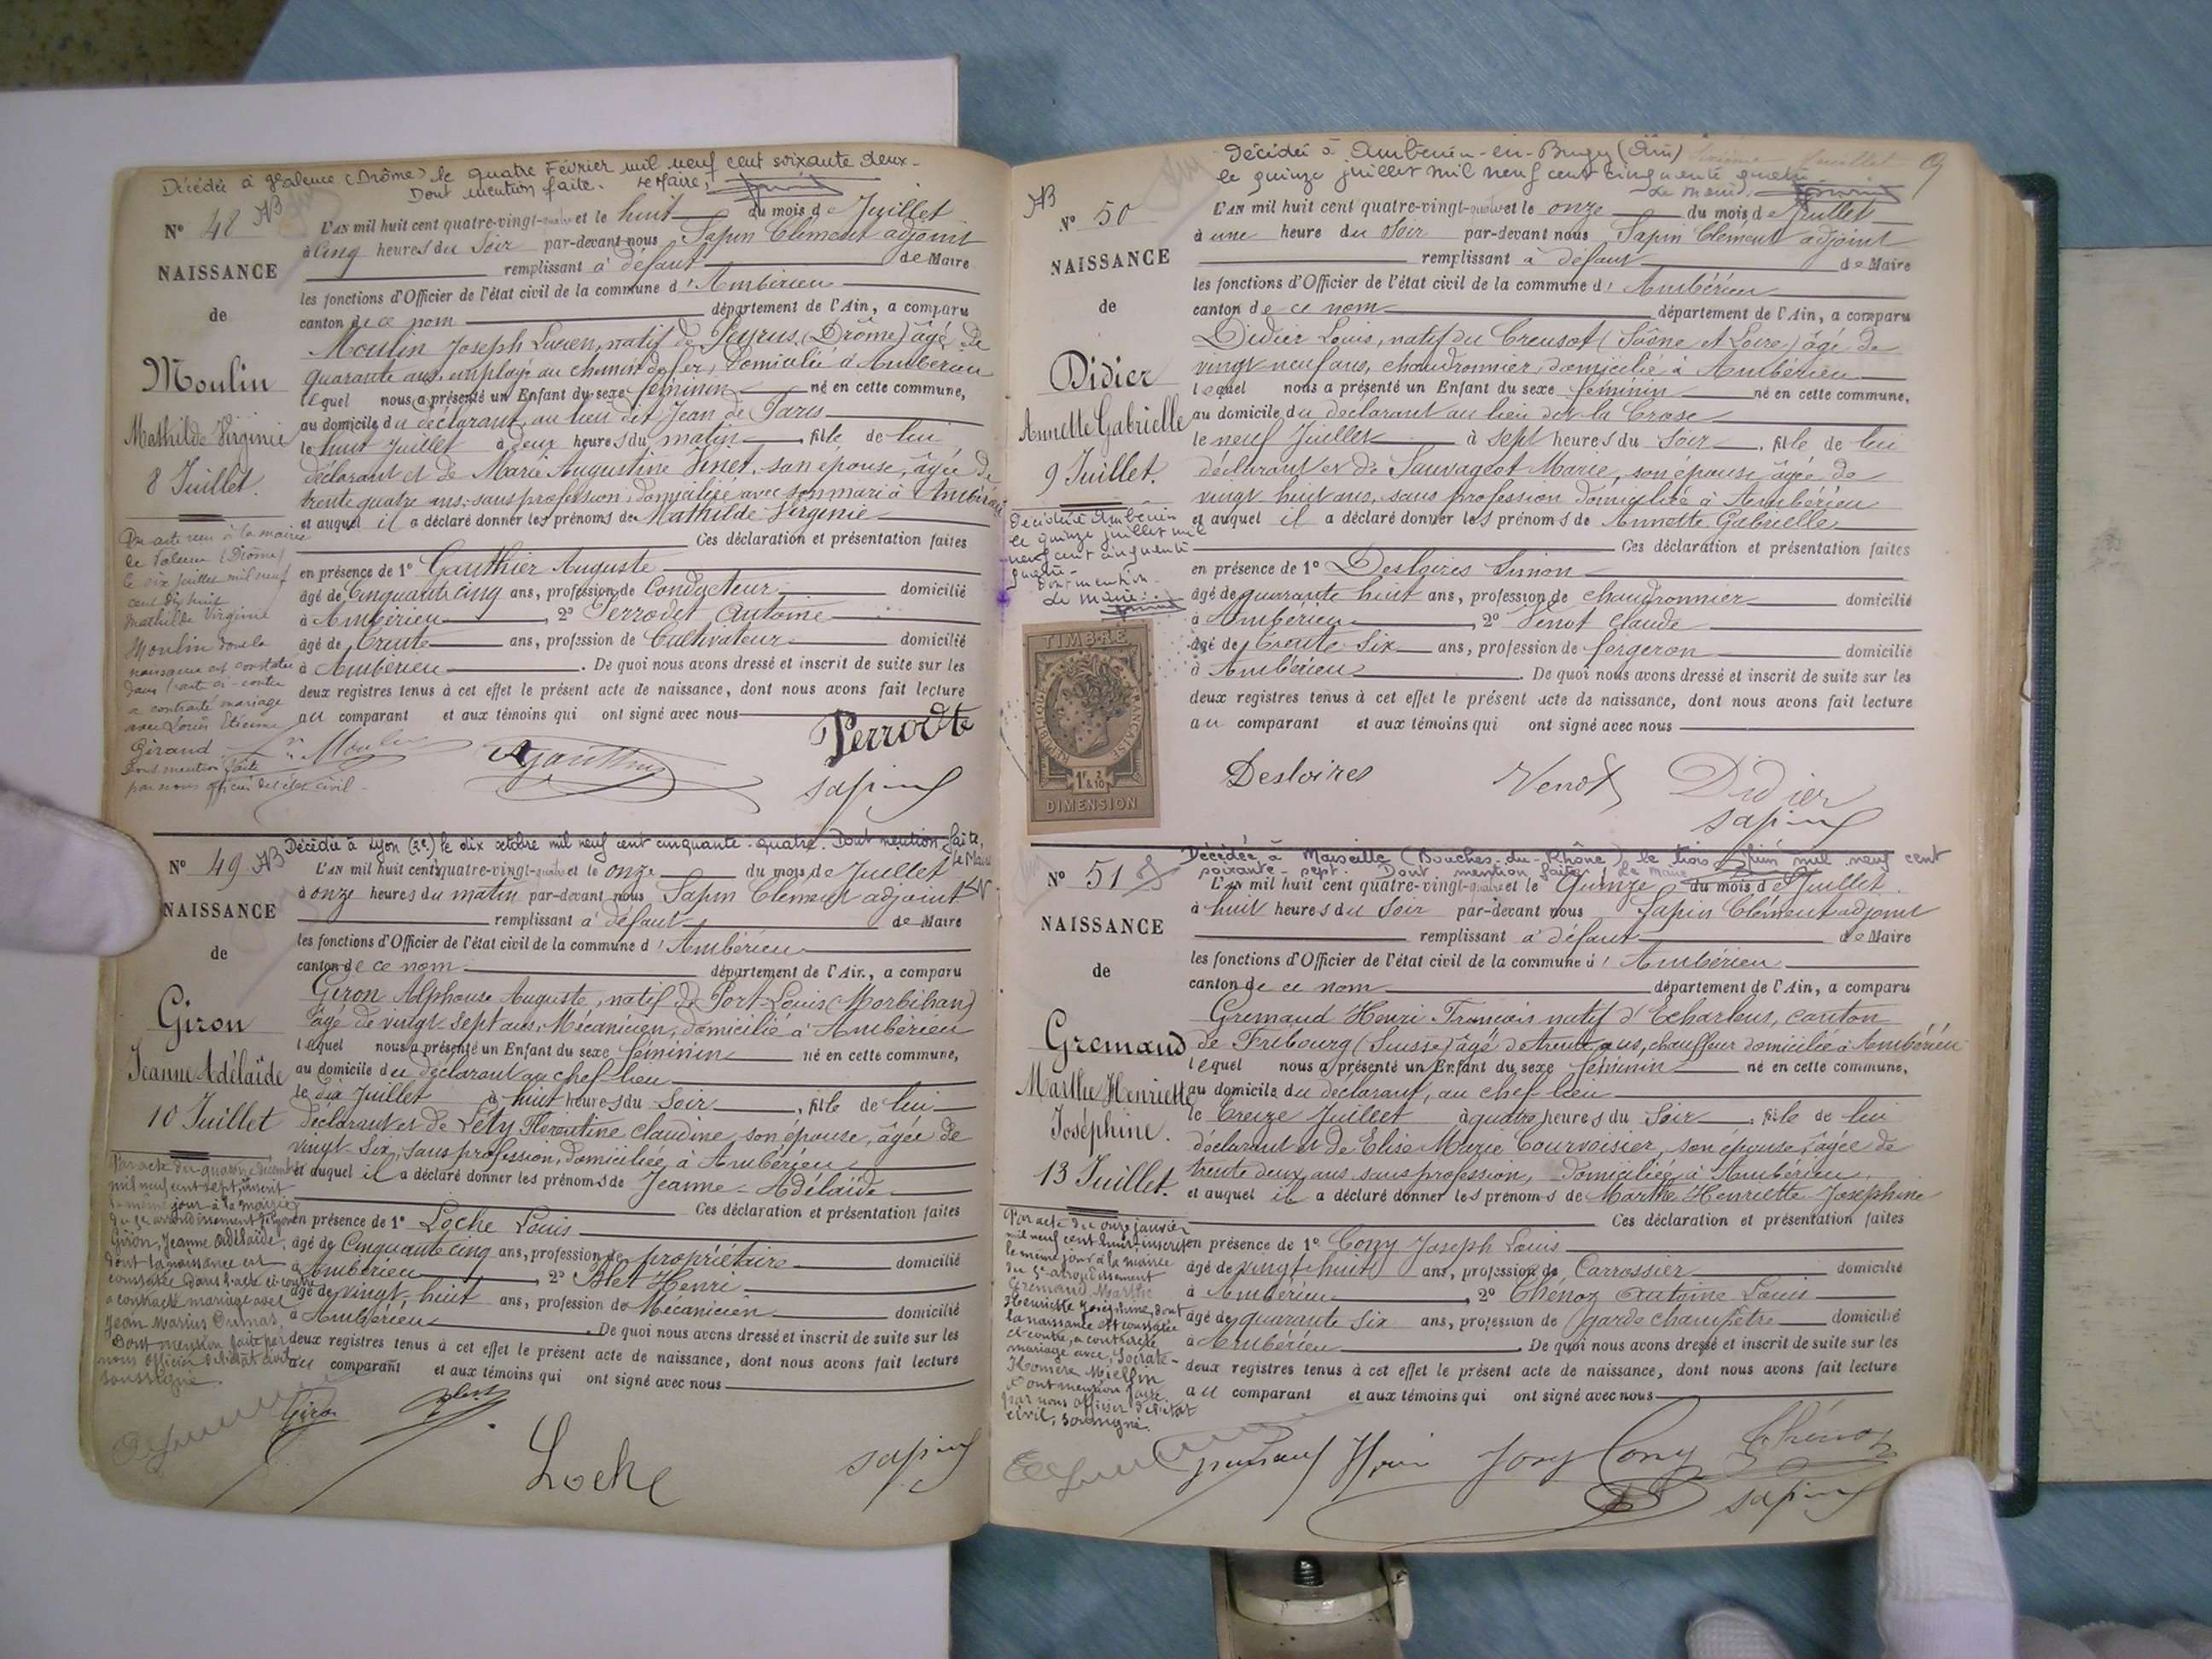 Décédée à Valence (Drôme) le quatre Février mil neuf cent soixante deux.
Dont mention faite. Le Maire,
N° 48
NAISSANCE
de
Moulin
Mathilde Virginie
8 Juillet.
L'AN mil huit cent quatre-vingt-quatre et le huit du mois de Juillet
à cinq heures du soir par-devant nous Sapin Clément adjoint
remplissant à défaut de Maire
les fonctions d'Officier de l'état civil de la commune d'Ambérieu
canton de ce nom département de l'Ain, a comparu
Moulin Joseph Lucien, natif de Peyrus (Drôme) âgé de
quarante ans, employé au chemin de fer, domicilié à Ambérieu
lequel nous a présenté un Enfant du sexe féminin né en cette commune,
au domicile du déclarant, au lieu dit Jean de Paris
le huit Juillet à deux heures du matin, fille de lui
déclarant et de Marie Augustine son épouse, âgée de
trente quatre ans, sans profession, domiciliée avec son mari à Ambérieu
et auquel il a déclaré donner les prénoms de Mathilde Virginie
Ces déclaration et présentation faites
en présence de 1° Gauthier Auguste
âgé de Cinquante cinq ans, profession de Conducteur domicilié
à Ambérieu, 2° Perrodet Antoine
âgé de trente ans, profession de Cultivateur domicilié
à Ambérieu. De quoi nous avons dressé et inscrit de suite sur les
deux registres tenus à cet effet le présent acte de naissance, dont nous avons fait lecture
au comparant et aux témoins qui ont signé avec nous
Par acte reçu à la mairie
de Valence (Drôme)
le six juillet mil neuf
cent dix huit
Mathilde Virginie
Moulin dont la
naissance est constatée
dans l'acte ci-contre
a contracté mariage
avec Louis Etienne
Giraud
Dont mention faite
par nous officier de l'état civil.
Moulin Gauthier Perrodet
Sapin
Décédée à Lyon (2e) le dix octobre mil neuf cent cinquante-quatre. Dont mention faite,
Le Maire
N° 49
NAISSANCE
de
Giron
Jeanne Adélaïde
10 Juillet
L'AN mil huit cent quatre-vingt-quatre et le onze du mois de Juillet
à onze heures du matin par-devant nous Sapin Clément adjoint
remplissant à défaut de Maire
les fonctions d'Officier de l'état civil de la commune d'Ambérieu
canton de ce nom département de l'Ain, a comparu
Giron Alphonse Auguste, natif de Port-Louis (Morbihan)
âgé de vingt-sept ans, Mécanicien, domicilié à Ambérieu
lequel nous a présenté un Enfant du sexe féminin né en cette commune,
au domicile du déclarant au chef lieu
le dix Juillet à huit heures du soir, fille de lui
déclarant et de Léty Florentine Claudine, son épouse, âgée de
vingt-six, sans profession, domiciliée à Ambérieu
et auquel il a déclaré donner les prénoms de Jeanne-Adélaïde
Ces déclaration et présentation faites
en présence de 1° Loche Louis
âgé de Cinquante cinq ans, profession de propriétaire domicilié
à Ambérieu, 2° Blet Henri
âgé de vingt-huit ans, profession de Mécanicien domicilié
à Ambérieu. De quoi nous avons dressé et inscrit de suite sur les
deux registres tenus à cet effet le présent acte de naissance, dont nous avons fait lecture
au comparant et aux témoins qui ont signé avec nous
Par acte du quatorze décembre
mil neuf cent sept, inscrit
le même jour à la mairie
du 5e arrondissement de Lyon
Giron, Jeanne Adélaïde,
dont la naissance est
constatée dans l'acte ci-contre
a contracté mariage avec
Jean Marius Dumas.
Dont mention faite par
nous officier de l'état civil
soussigné.
Giron Blet
Loche Sapin
Décédée à Ambérieu-en-Bugey (Ain)
le quinze juillet mil neuf cent cinquante quatre
Le Maire.
N° 50
NAISSANCE
de
Didier
Annette Gabrielle
9 Juillet.
L'AN mil huit cent quatre-vingt-quatre et le onze du mois de Juillet
à une heure du soir par-devant nous Sapin Clément adjoint
remplissant à défaut de Maire
les fonctions d'Officier de l'état civil de la commune d'Ambérieu
canton de ce nom département de l'Ain, a comparu
Didier Louis, natif du Creusot (Saône et Loire) âgé de
vingt neuf ans, chaudronnier, domicilié à Ambérieu
lequel nous a présenté un Enfant du sexe féminin né en cette commune,
au domicile du déclarant au lieu dit la Crose
le neuf Juillet à sept heures du soir, fille de lui
déclarant et de Sauvageot Marie, son épouse, âgée de
vingt-huit ans, sans profession domiciliée à Ambérieu
et auquel il a déclaré donner les prénoms de Annette Gabrielle
Ces déclaration et présentation faites
en présence de 1° Desloires Simon
âgé de quarante huit ans, profession de chaudronnier domicilié
à Ambérieu, 2° Venot Claude
âgé de trente six ans, profession de forgeron domicilié
à Ambérieu. De quoi nous avons dressé et inscrit de suite sur les
deux registres tenus à cet effet le présent acte de naissance, dont nous avons fait lecture
au comparant et aux témoins qui ont signé avec nous
Décédée à Ambérieu
le quinze juillet mil
neuf cent cinquante
quatre
Dont mention.
Le Maire:
TIMBRE
RÉPUBLIQUE FRANÇAISE
1F 2/10
DIMENSION
Desloires Venot Didier
Sapin
Décédée à Marseille (Bouches-du-Rhône) le trois juin mil neuf cent
soixante-sept. Dont mention faite. Le Maire
N° 51
NAISSANCE
de
Gremaud
Marthe Henriette
Joséphine.
13 Juillet.
L'AN mil huit cent quatre-vingt-quatre et le Quinze du mois de Juillet
à huit heures du soir par-devant nous Sapin Clément adjoint
remplissant à défaut de Maire
les fonctions d'Officier de l'état civil de la commune d'Ambérieu
canton de ce nom département de l'Ain, a comparu
Gremaud Henri François natif d'Echarlens, canton
de Fribourg (Suisse) âgé de trente ans, chauffeur domicilié à Ambérieu
lequel nous a présenté un Enfant du sexe féminin né en cette commune,
au domicile du déclarant, au chef lieu
le treize Juillet à quatre heures du soir, fille de lui
déclarant et de Elise Marie Courvoisier, son épouse, âgée de
trente deux ans sans profession, domiciliée à Ambérieu.
et auquel il a déclaré donner les prénoms de Marthe Henriette Joséphine
Ces déclaration et présentation faites
en présence de 1° Cony Joseph Louis
âgé de vingt-huit ans, profession de Carrossier domicilié
à Ambérieu, 2° Chénoz Antoine Louis
âgé de quarante six ans, profession de garde champêtre domicilié
à Ambérieu. De quoi nous avons dressé et inscrit de suite sur les
deux registres tenus à cet effet le présent acte de naissance, dont nous avons fait lecture
au comparant et aux témoins qui ont signé avec nous
Par acte du onze janvier
mil neuf cent huit, inscrit
le même jour à la mairie
du 5e arrondissement
Gremaud Marthe
Henriette Joséphine, dont
la naissance est constatée
ci-contre, a contracté
mariage avec Socrate-
Homère Miellin
Dont mention faite
par nous officier de l'état
civil, soussigné.
Gremaud Henri Cony Chénoz
Sapin